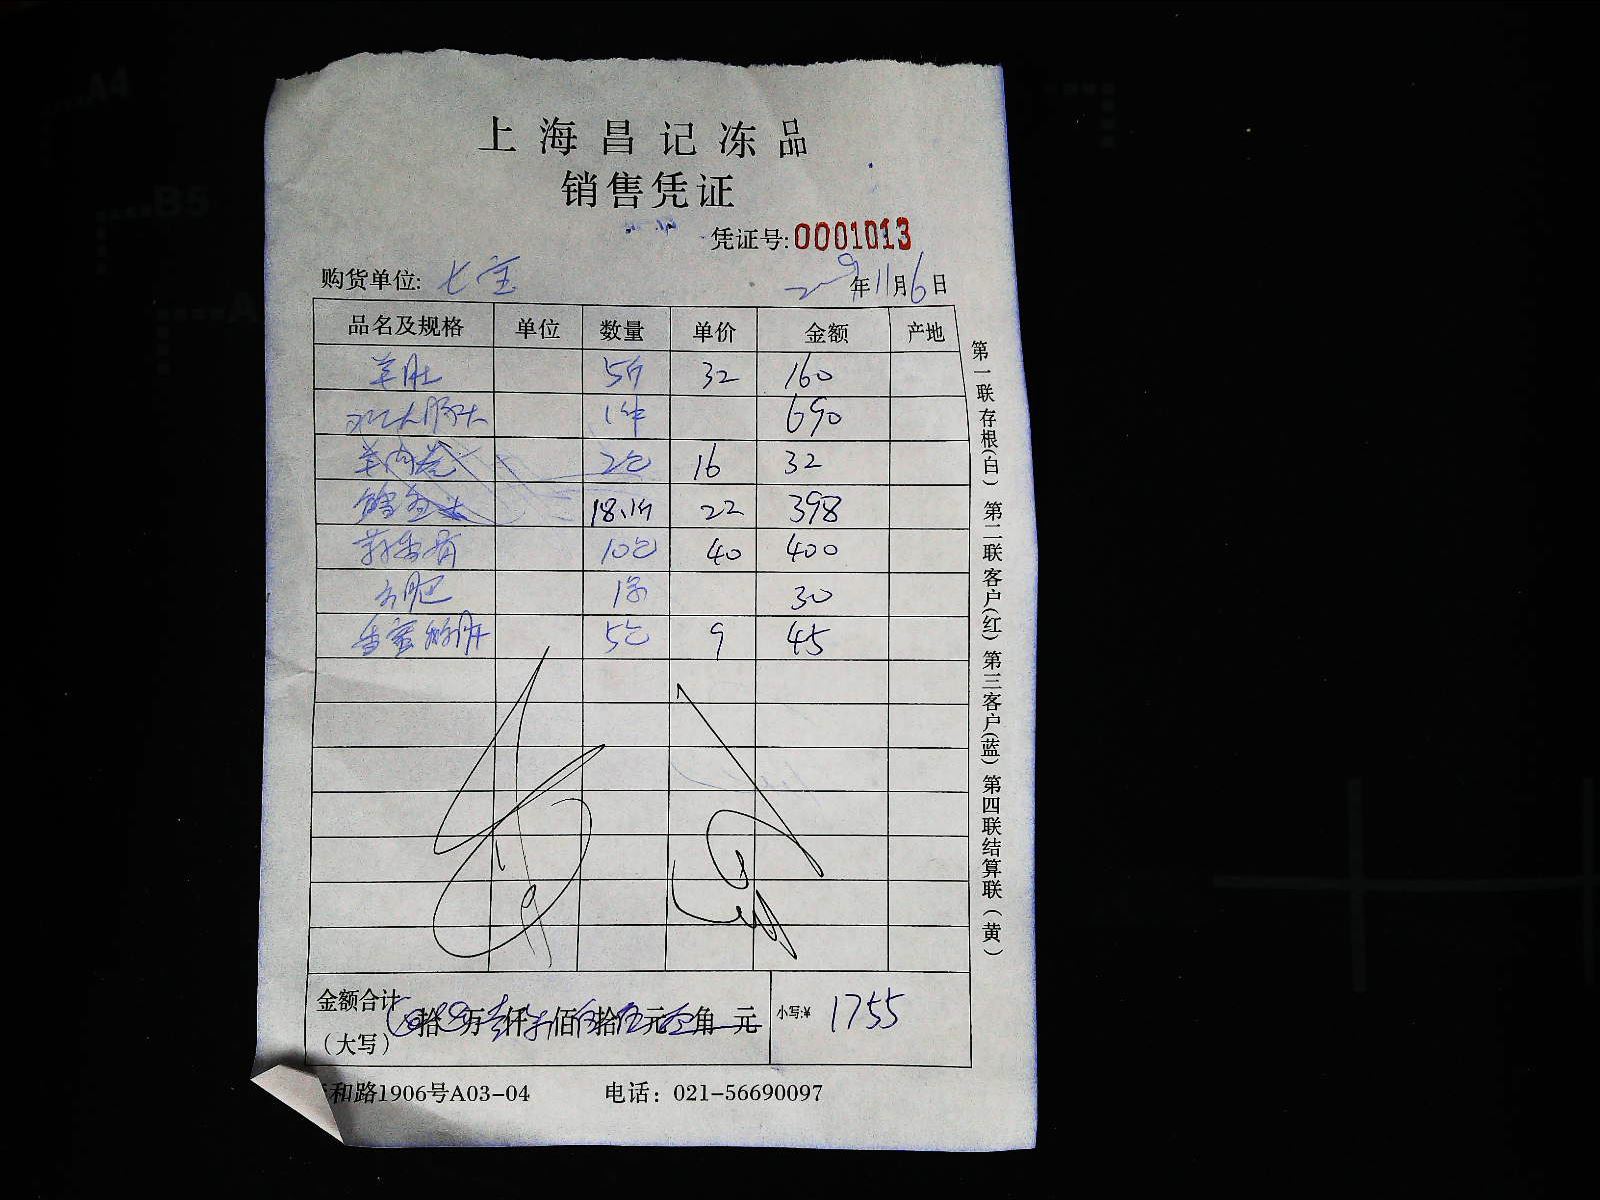 上海昌记冻品
销售凭证
凭证号:0001013
购货单位: 七宝 年11月6日
品名及规格 单位 数量 单价 金额 产地
羊肚 5斤 32 160
1件 690
羊肉卷 2包 16 32
18.1斤 22 398
10包 40 400
30
5包 9 45
金额合计
(大写) 拾 万 壹仟 柒佰 伍拾 伍元 角 元 小写:¥ 1755
和路1906号A03-04 电话: 021-56690097
第一联存根(白) 第二联客户(红) 第三客户(蓝) 第四联结算联(黄)